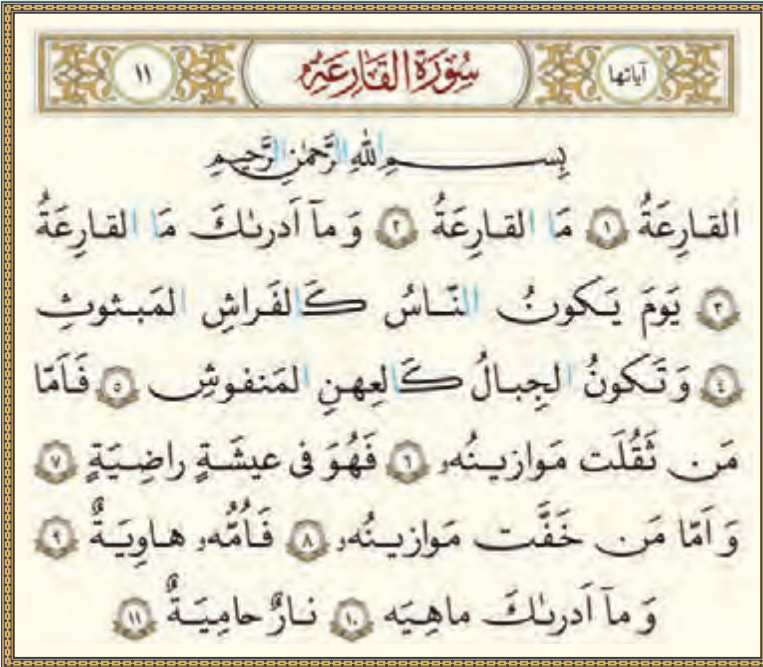 آیاتها سُورَةُ القَارِعَةِ ١١
بِسمِ اللّٰهِ الرَّحمٰنِ الرَّحیمِ
اَلقارِعَةُ ١ مَا القارِعَةُ ٢ وَ مآ اَدرىٰكَ مَا القارِعَةُ
٣ یَومَ یَكونُ النّاسُ كَالفَراشِ المَبثوثِ
٤ وَ تَكونُ الجِبالُ كَالعِهنِ المَنفوشِ ٥ فَاَمّا
مَن ثَقُلَت مَوازینُهُۥ ٦ فَهُوَ فى عیشَةٍ راضِیَةٍ ٧
وَ اَمّا مَن خَفَّت مَوازینُهُۥ ٨ فَاُمُّهُۥ هاوِیَةٌ ٩
وَ مآ اَدرىٰكَ ماهِیَه ١٠ نارٌ حامِیَةٌ ١١